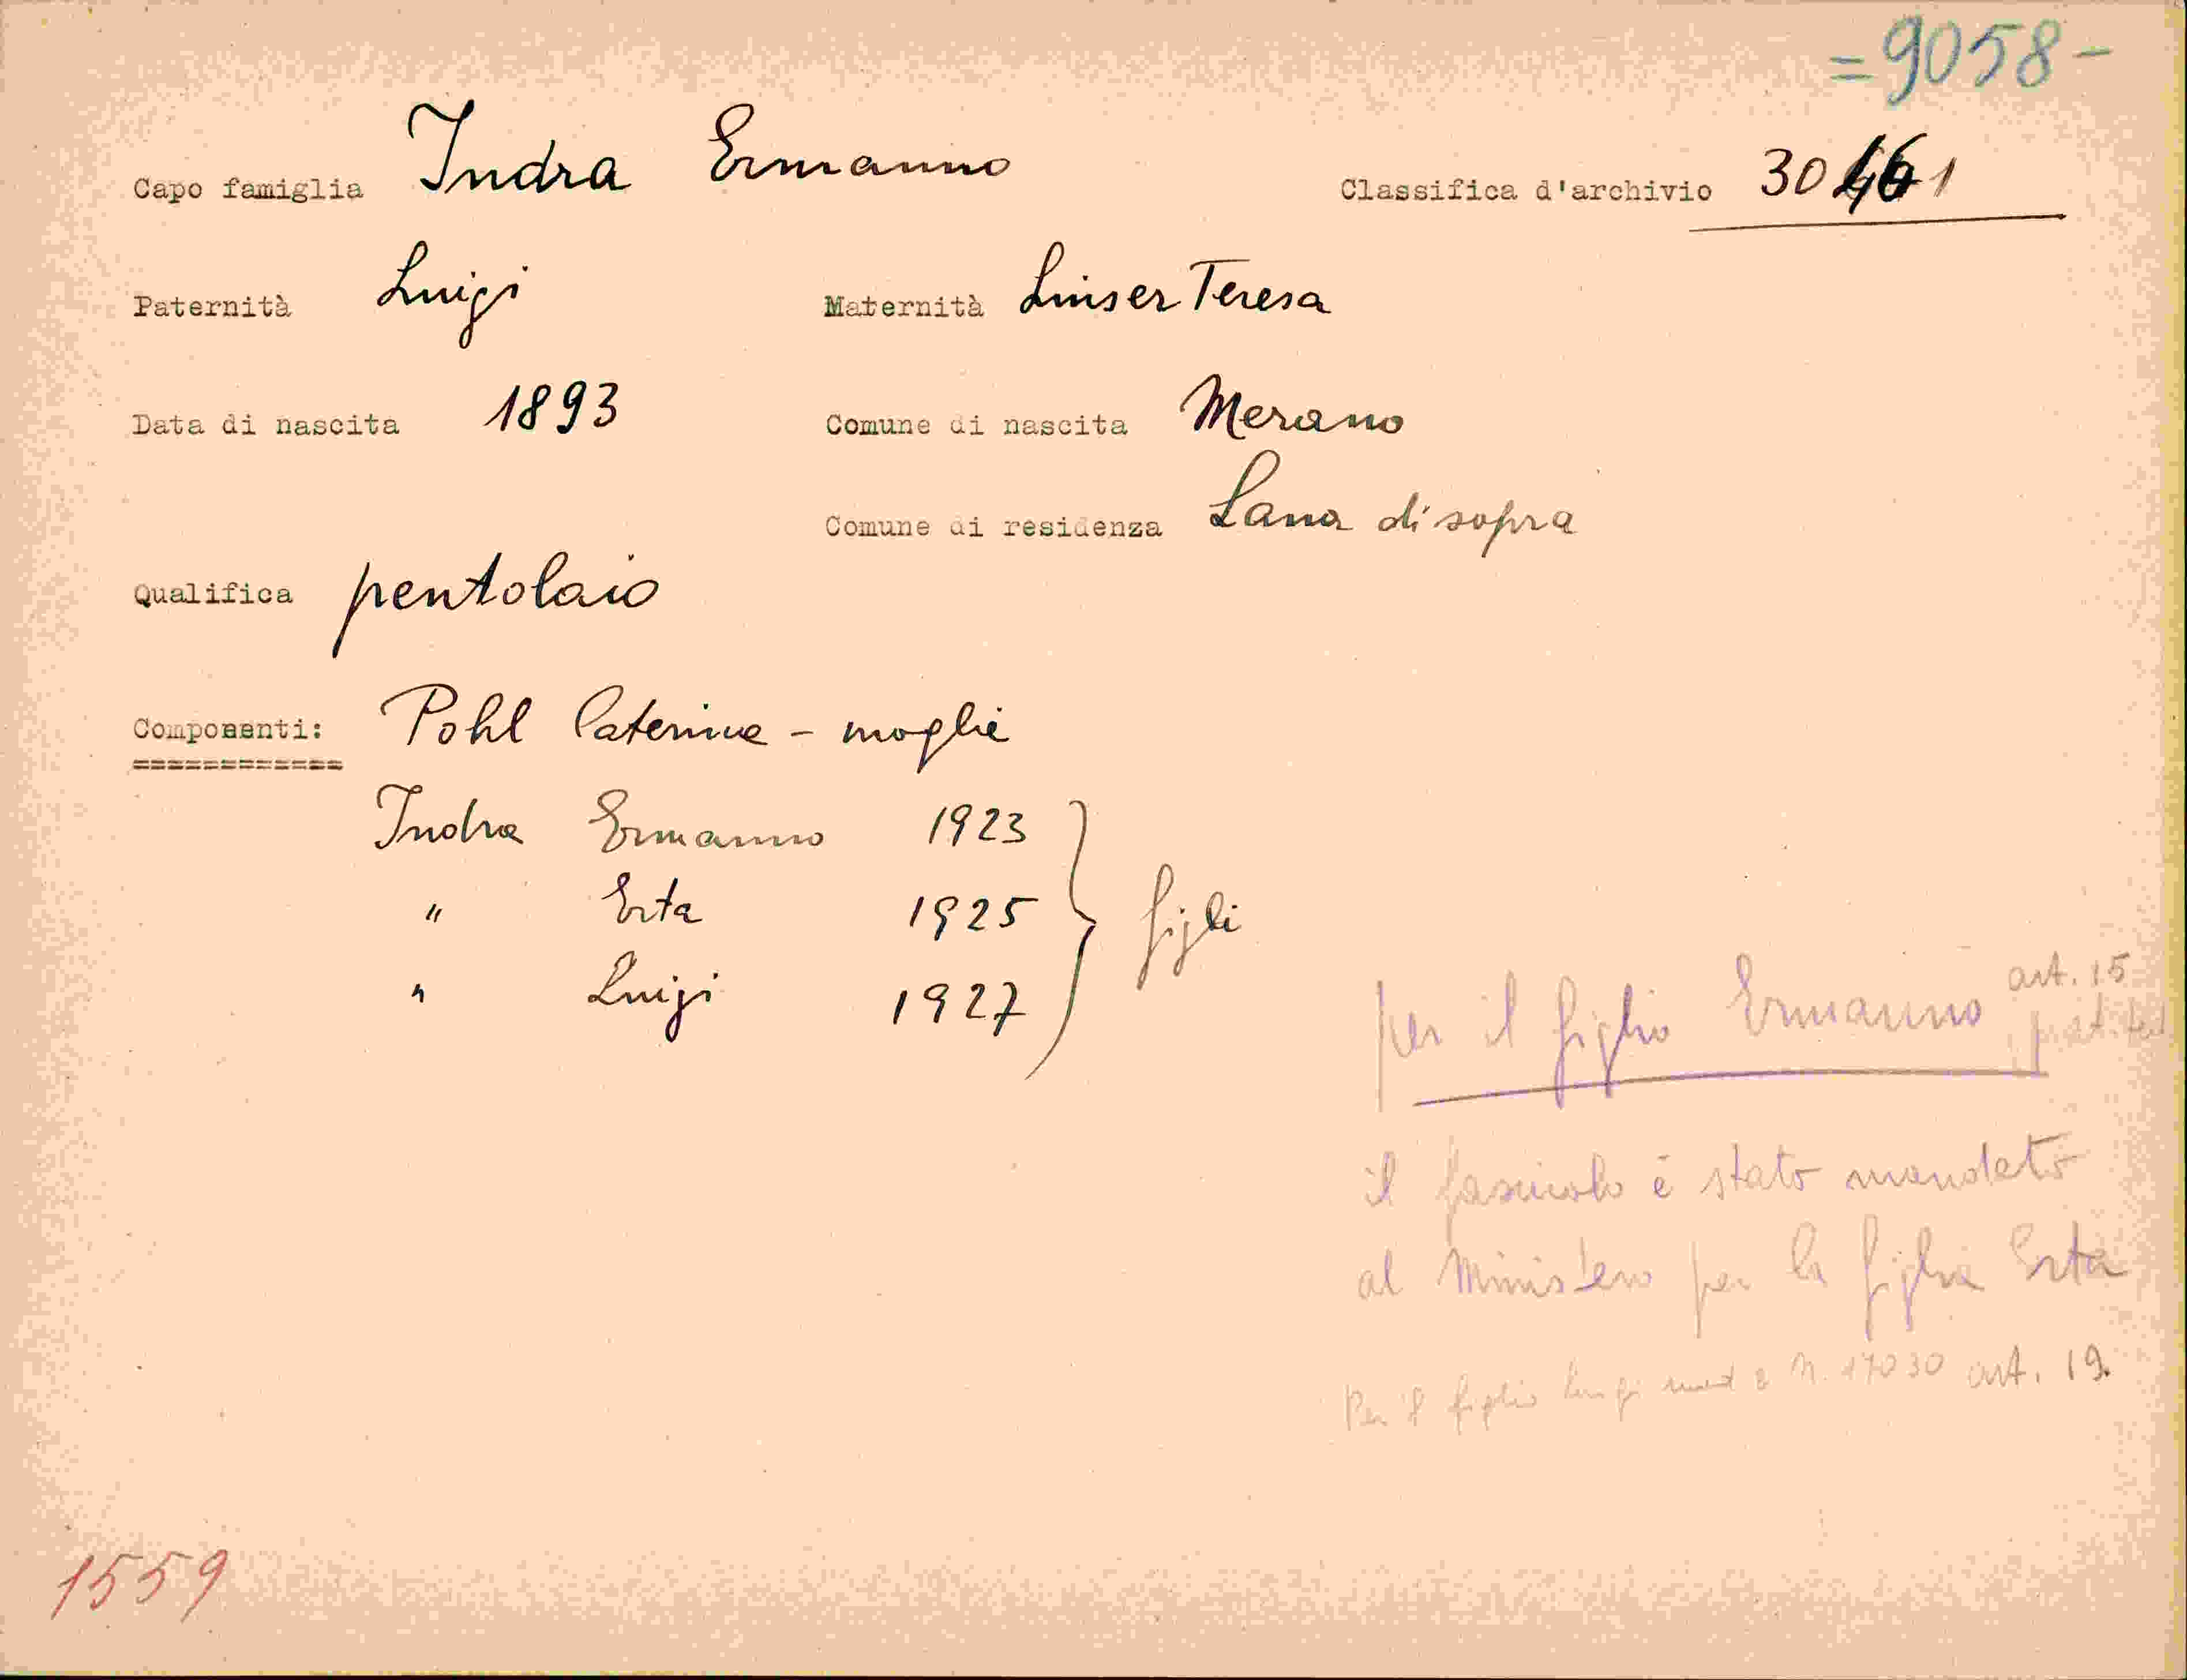 =9058-
Capo famiglia Indra Ermanno Classifica d'archivio 30461
Paternità Luigi Maternità Linser Teresa
Data di nascita 1893 Comune di nascita Merano
Comune di residenza Lana di sopra
Qualifica pentolaio
Componenti: Pohl Caterina - moglie
============
Indra Ermanno 1923
" Erta 1925 figli
" Luigi 1927
per il figlio Ermanno art. 15
il fascicolo è stato mandato
al Ministero per la figlia Erta
Per il figlio Luigi N. 17030 art. 19.
1559